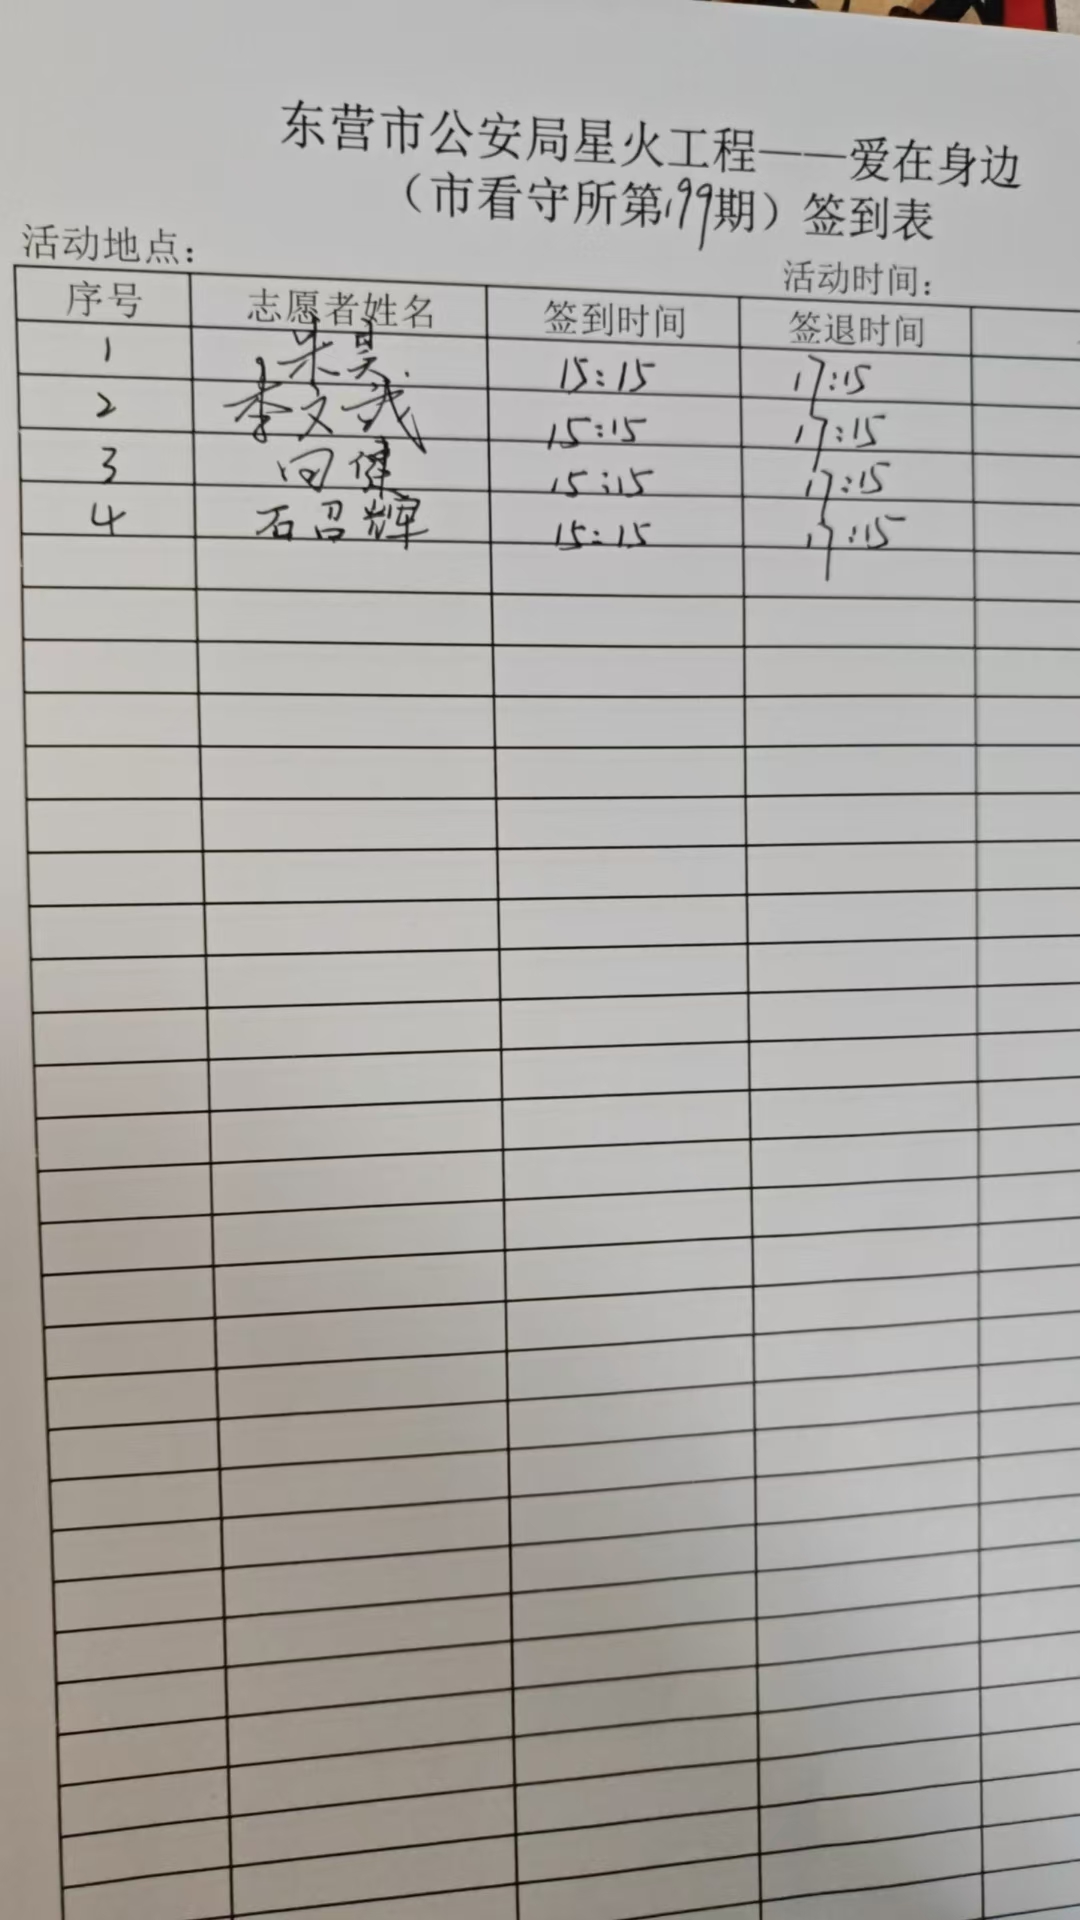 东营市公安局星火工程——爱在身边
（市看守所第199期）签到表
活动地点： 活动时间：
序号 志愿者姓名 签到时间 签退时间
1 朱昊 15:15 17:15
2 李文武 15:15 17:15
3 向健 15:15 17:15
4 石召辉 15:15 17:15